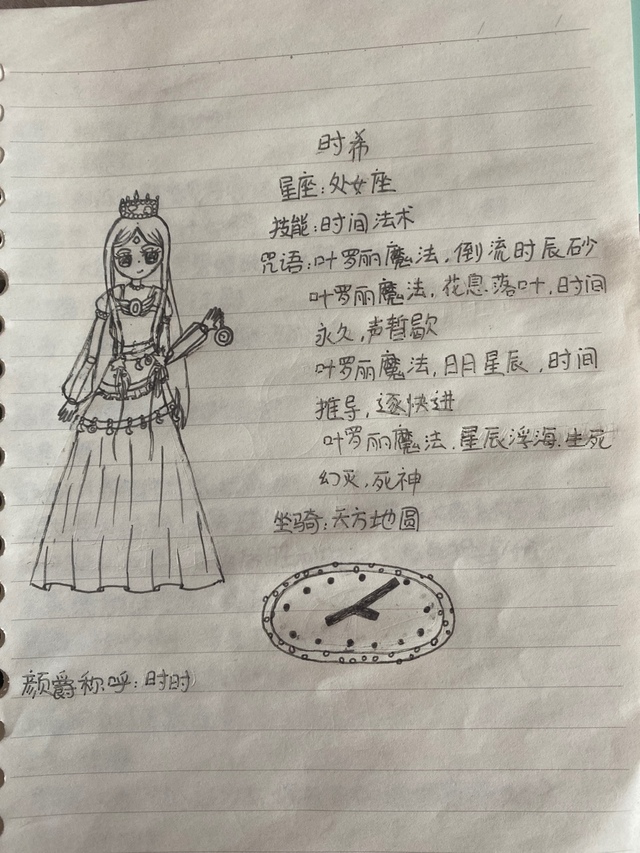 时希
星座:处女座
技能:时间法术
咒语:叶罗丽魔法,倒流时辰砂
叶罗丽魔法,花息.落叶,时间
永久,声暂歇
叶罗丽魔法,日月星辰,时间
推导,逐快进
叶罗丽魔法.星辰浮海.生死
幻灭,死神
坐骑:天方地圆
颜爵称呼:时时